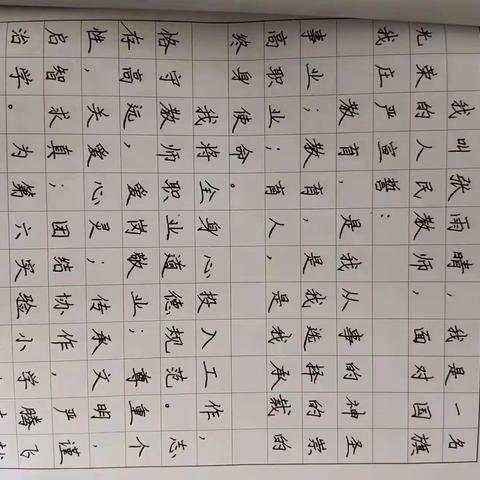 我叫张雨晴，我是一名
光荣的人民教师，面对国旗
我庄严宣誓：
教育，是我从事的神圣
事业；教育，是我选择的崇
高职业；育人，是我承载的
终身使命。
我将全身心投入工作，
恪守教师职业道德规范。志
存高远，爱岗敬业；尊重个
性，关爱心灵；传承文明，
启智求真；团结协作，严谨
治学。为第六实验小学腾飞